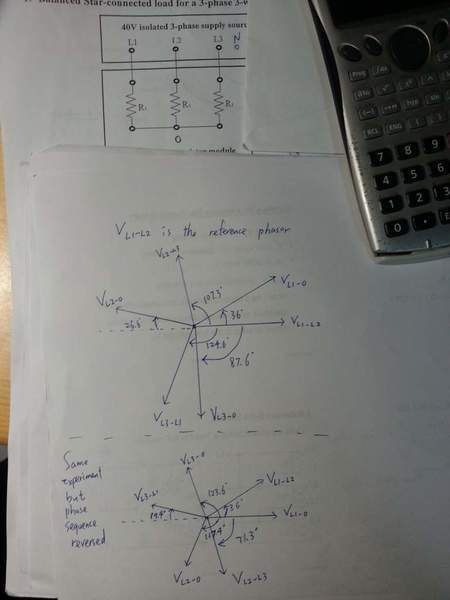 Balanced Star-connected load for a 3-phase 3-w
40V isolated 3-phase supply sourc
L1 L2 L3 N
R₁ R₁ R₁
O
module
VL1-L2 is the reference phaser
VL2-L3
107.3° VL1-0
VL2-0 36°
VL1-L2
124.6°
87.6°
VL3-L1 VL3-0
Same
experiment
but
phase
sequence
reversed
VL3-0
VL1-L2
VL3-L1 123.6° 36°
VL1-0
117.4° 71.3°
VL2-0 VL2-L3
7 8 9
4 5 6
1 2 3
0
RCL ENG